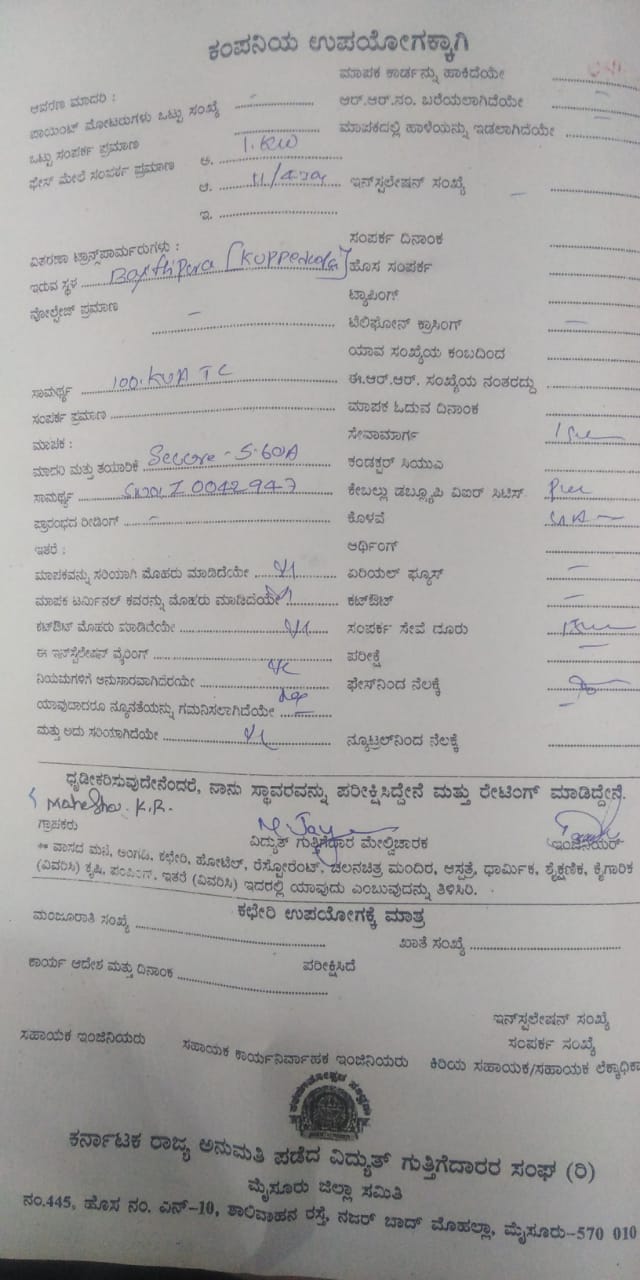 ಕಂಪನಿಯ ಉಪಯೋಗಕ್ಕಾಗಿ
ಮಾಪಕ ಕಾರ್ಡನ್ನು ಹಾಕಿದೆಯೇ
ಆವರಣ ಮಾದರಿ :
ಆರ್.ಆರ್.ನಂ. ಬರೆಯಲಾಗಿದೆಯೇ
ಪಾಯಿಂಟ್ ಮೋಟರುಗಳು ಒಟ್ಟು ಸಂಖ್ಯೆ
ಮಾಪಕದಲ್ಲಿ ಹಾಳೆಯನ್ನು ಇಡಲಾಗಿದೆಯೇ
ಒಟ್ಟು ಸಂಪರ್ಕ ಪ್ರಮಾಣ
ಫೇಸ್ ಮೇಲೆ ಸಂಪರ್ಕ ಪ್ರಮಾಣ ಅ. 1.KW
ಆ. ಇನ್‌ಸ್ಟಲೇಷನ್ ಸಂಖ್ಯೆ
ಇ.
ವಿತರಣಾ ಟ್ರಾನ್ಸ್‌ಪಾರ್ಮರುಗಳು : ಸಂಪರ್ಕ ದಿನಾಂಕ
ಇರುವ ಸ್ಥಳ ಹೊಸ ಸಂಪರ್ಕ
ವೋಲ್ಟೇಜ್ ಪ್ರಮಾಣ ಟ್ಯಾಪಿಂಗ್
ಟೆಲಿಫೋನ್ ಕ್ರಾಸಿಂಗ್
ಯಾವ ಸಂಖ್ಯೆಯ ಕಂಬದಿಂದ
ಸಾಮರ್ಥ್ಯ 100.KVA TC ಈ.ಆರ್.ಆರ್. ಸಂಖ್ಯೆಯ ನಂತರದ್ದು
ಸಂಪರ್ಕ ಪ್ರಮಾಣ ಮಾಪಕ ಓದುವ ದಿನಾಂಕ
ಮಾಪಕ : ಸೇವಾಮಾರ್ಗ
ಮಾದರಿ ಮತ್ತು ತಯಾರಿಕೆ Secure-5-60A ಕಂಡಕ್ಟರ್ ಸಿಯುಎ
ಸಾಮರ್ಥ್ಯ 0042947 ಕೇಬಲ್ಲು ಡಬ್ಲ್ಯೂಪಿ ವಿಐಆರ್ ಸಿಟಿಸ್
ಪ್ರಾರಂಭದ ರೀಡಿಂಗ್ ಕೊಳವೆ
ಇತರೆ : ಆರ್ಥಿಂಗ್
ಮಾಪಕವನ್ನು ಸರಿಯಾಗಿ ಮೊಹರು ಮಾಡಿದೆಯೇ ಏರಿಯಲ್ ಫ್ಯೂಸ್
ಮಾಪಕ ಟರ್ಮಿನಲ್ ಕವರನ್ನು ಮೊಹರು ಮಾಡಿದೆಯೇ ಕಟ್‌ಔಟ್
ಕಟ್‌ಔಟ್ ಮೊಹರು ಮಾಡಿದೆಯೇ ಸಂಪರ್ಕ ಸೇವೆ ದೂರು
ಈ ಇನ್‌ಸ್ಟಲೇಷನ್ ವೈರಿಂಗ್ ಪರೀಕ್ಷೆ
ನಿಯಮಗಳಿಗೆ ಅನುಸಾರವಾಗಿದೆಯೇ ಫೇಸ್‌ನಿಂದ ನೆಲಕ್ಕೆ
ಯಾವುದಾದರೂ ನ್ಯೂನತೆಯನ್ನು ಗಮನಿಸಲಾಗಿದೆಯೇ
ಮತ್ತು ಅದು ಸರಿಯಾಗಿದೆಯೇ ನ್ಯೂಟ್ರಲ್‌ನಿಂದ ನೆಲಕ್ಕೆ
ಧೃಡೀಕರಿಸುವುದೇನೆಂದರೆ, ನಾನು ಸ್ಥಾವರವನ್ನು ಪರೀಕ್ಷಿಸಿದ್ದೇನೆ ಮತ್ತು ರೇಟಿಂಗ್ ಮಾಡಿದ್ದೇನೆ.
K.R.
ಗ್ರಾಹಕರು ವಿದ್ಯುತ್ ಗುತ್ತಿಗೆದಾರ ಮೇಲ್ವಿಚಾರಕ ಇಂಜಿನಿಯರ್
** ವಾಸದ ಮನೆ, ಅಂಗಡಿ, ಕಛೇರಿ, ಹೋಟೆಲ್, ರೆಸ್ಟೋರೆಂಟ್, ಚಲನಚಿತ್ರ ಮಂದಿರ, ಆಸ್ಪತ್ರೆ, ಧಾರ್ಮಿಕ, ಶೈಕ್ಷಣಿಕ, ಕೈಗಾರಿಕ
(ವಿವರಿಸಿ) ಕೃಷಿ, ಪಂಪಿಂಗ್, ಇತರೆ (ವಿವರಿಸಿ) ಇದರಲ್ಲಿ ಯಾವುದು ಎಂಬುವುದನ್ನು ತಿಳಿಸಿರಿ.
ಕಛೇರಿ ಉಪಯೋಗಕ್ಕೆ ಮಾತ್ರ
ಮಂಜೂರಾತಿ ಸಂಖ್ಯೆ ಖಾತೆ ಸಂಖ್ಯೆ
ಕಾರ್ಯ ಆದೇಶ ಮತ್ತು ದಿನಾಂಕ ಪರೀಕ್ಷಿಸಿದೆ
ಇನ್‌ಸ್ಟಲೇಷನ್ ಸಂಖ್ಯೆ
ಸಂಪರ್ಕ ಸಂಖ್ಯೆ
ಸಹಾಯಕ ಇಂಜಿನಿಯರು ಸಹಾಯಕ ಕಾರ್ಯನಿರ್ವಾಹಕ ಇಂಜಿನಿಯರು ಕಿರಿಯ ಸಹಾಯಕ/ಸಹಾಯಕ ಲೆಕ್ಕಾಧಿಕಾ
ಕರ್ನಾಟಕ ರಾಜ್ಯ ಅನುಮತಿ ಪಡೆದ ವಿದ್ಯುತ್ ಗುತ್ತಿಗೆದಾರರ ಸಂಘ (ರಿ)
ಮೈಸೂರು ಜಿಲ್ಲಾ ಸಮಿತಿ
ನಂ.445, ಹೊಸ ನಂ. ಎನ್-10, ಶಾಲಿವಾಹನ ರಸ್ತೆ, ನಜರ್ ಬಾದ್ ಮೊಹಲ್ಲಾ, ಮೈಸೂರು-570 010